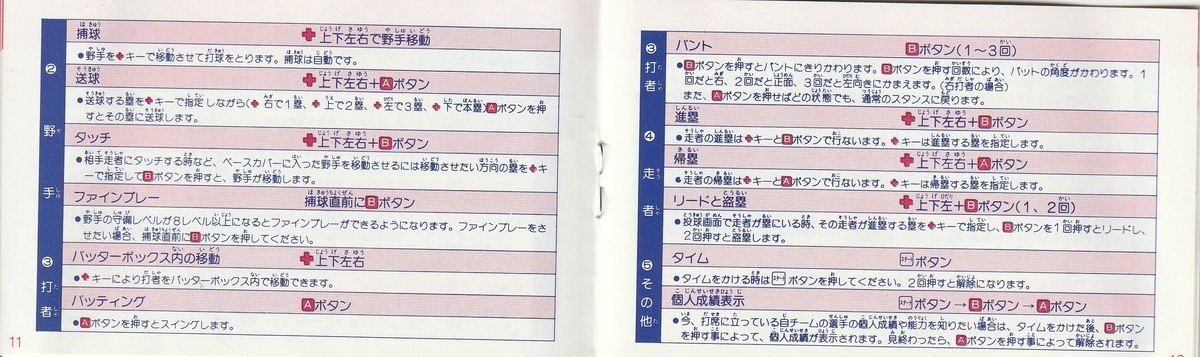 捕球 ✚上下左右で野手移動
●野手を✚キーで移動させて打球をとります。捕球は自動です。
②野手
送球 ✚上下左右+Aボタン
●送球する塁を✚キーで指定しながら(✚右で1塁、✚上で2塁、✚左で3塁、✚下で本塁)Aボタンを押
すとその塁に送球します。
タッチ ✚上下左右+Bボタン
●相手走者にタッチする時など、ベースカバーに入った野手を移動させるには移動させたい方向の塁を✚キ
ーで指定してBボタンを押すと、野手が移動します。
ファインプレー 捕球直前にBボタン
●野手の守備レベルが8レベル以上になるとファインプレーができるようになります。ファインプレーをさ
せたい場合、捕球直前にBボタンを押してください。
③打者
バッターボックス内の移動 ✚上下左右
●✚キーにより打者をバッターボックス内で移動できます。
バッティング Aボタン
●Aボタンを押すとスイングします。
11
③打者
バント Bボタン(1〜3回)
●Bボタンを押すとバントにきりかわります。Bボタンを押す回数により、バットの角度がかわります。1
回だと右、2回だと正面、3回だと左向きにかまえます。(右打者の場合)
また、Aボタンを押せばどの状態でも、通常のスタンスに戻ります。
④走者
進塁 ✚上下左右+Bボタン
●走者の進塁は✚キーとBボタンで行ないます。✚キーは進塁する塁を指定します。
帰塁 ✚上下左右+Aボタン
●走者の帰塁は✚キーとAボタンで行ないます。✚キーは帰塁する塁を指定します。
リードと盗塁 ✚上下左+Bボタン(1、2回)
●投球画面で走者が塁にいる時、その走者が進塁する塁を✚キーで指定し、Bボタンを1回押すとリードし、
2回押すと盗塁します。
⑤その他
タイム スタートボタン
●タイムをかける時はスタートボタンを押してください。2回押すと解除になります。
個人成績表示 スタートボタン→Bボタン→Aボタン
●今、打席に立っている自チームの選手の個人成績や能力を知りたい場合は、タイムをかけた後、Bボタン
を押す事によって、個人成績が表示されます。見終わったら、Aボタンを押す事によって解除されます。